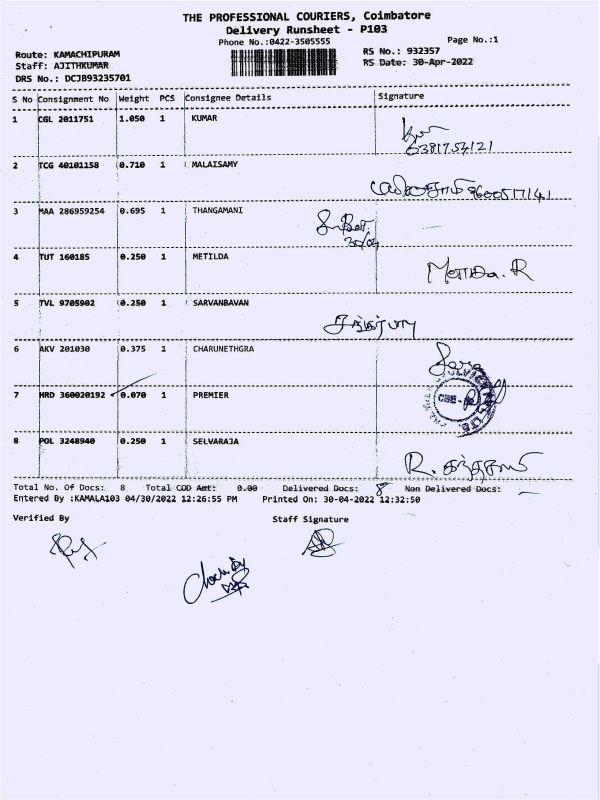 THE PROFESSIONAL COURIERS, Coimbatore
Delivery Runsheet - P103
Phone No.:0422-3505555
Page No.:1
Route: KAMACHIPURAM
Staff: AJITHKUMAR
DRS No.: DCJB93235701
RS No.: 932357
RS Date: 30-Apr-2022
S No Consignment No Weight PCS Consignee Details Signature
1 CGL 2011751 1.050 1 KUMAR
6381754121
2 TCG 40101158 0.710 1 MALAISAMY
9600517141
3 MAA 286959254 0.695 1 THANGAMANI
30/04
4 TUT 160185 0.250 1 METILDA
Metilda. R
5 TVL 9705902 0.250 1 SARVANBAVAN
6 AKV 201030 0.375 1 CHARUNETHGRA
7 HRD 360020192 0.070 1 PREMIER
8 POL 3248940 0.250 1 SELVARAJA
Total No. Of Docs: 8 Total COD Amt: 0.00 Delivered Docs: 8 Non Delivered Docs: –
Entered By :KAMALA103 04/30/2022 12:26:55 PM Printed On: 30-04-2022 12:32:50
Verified By Staff Signature